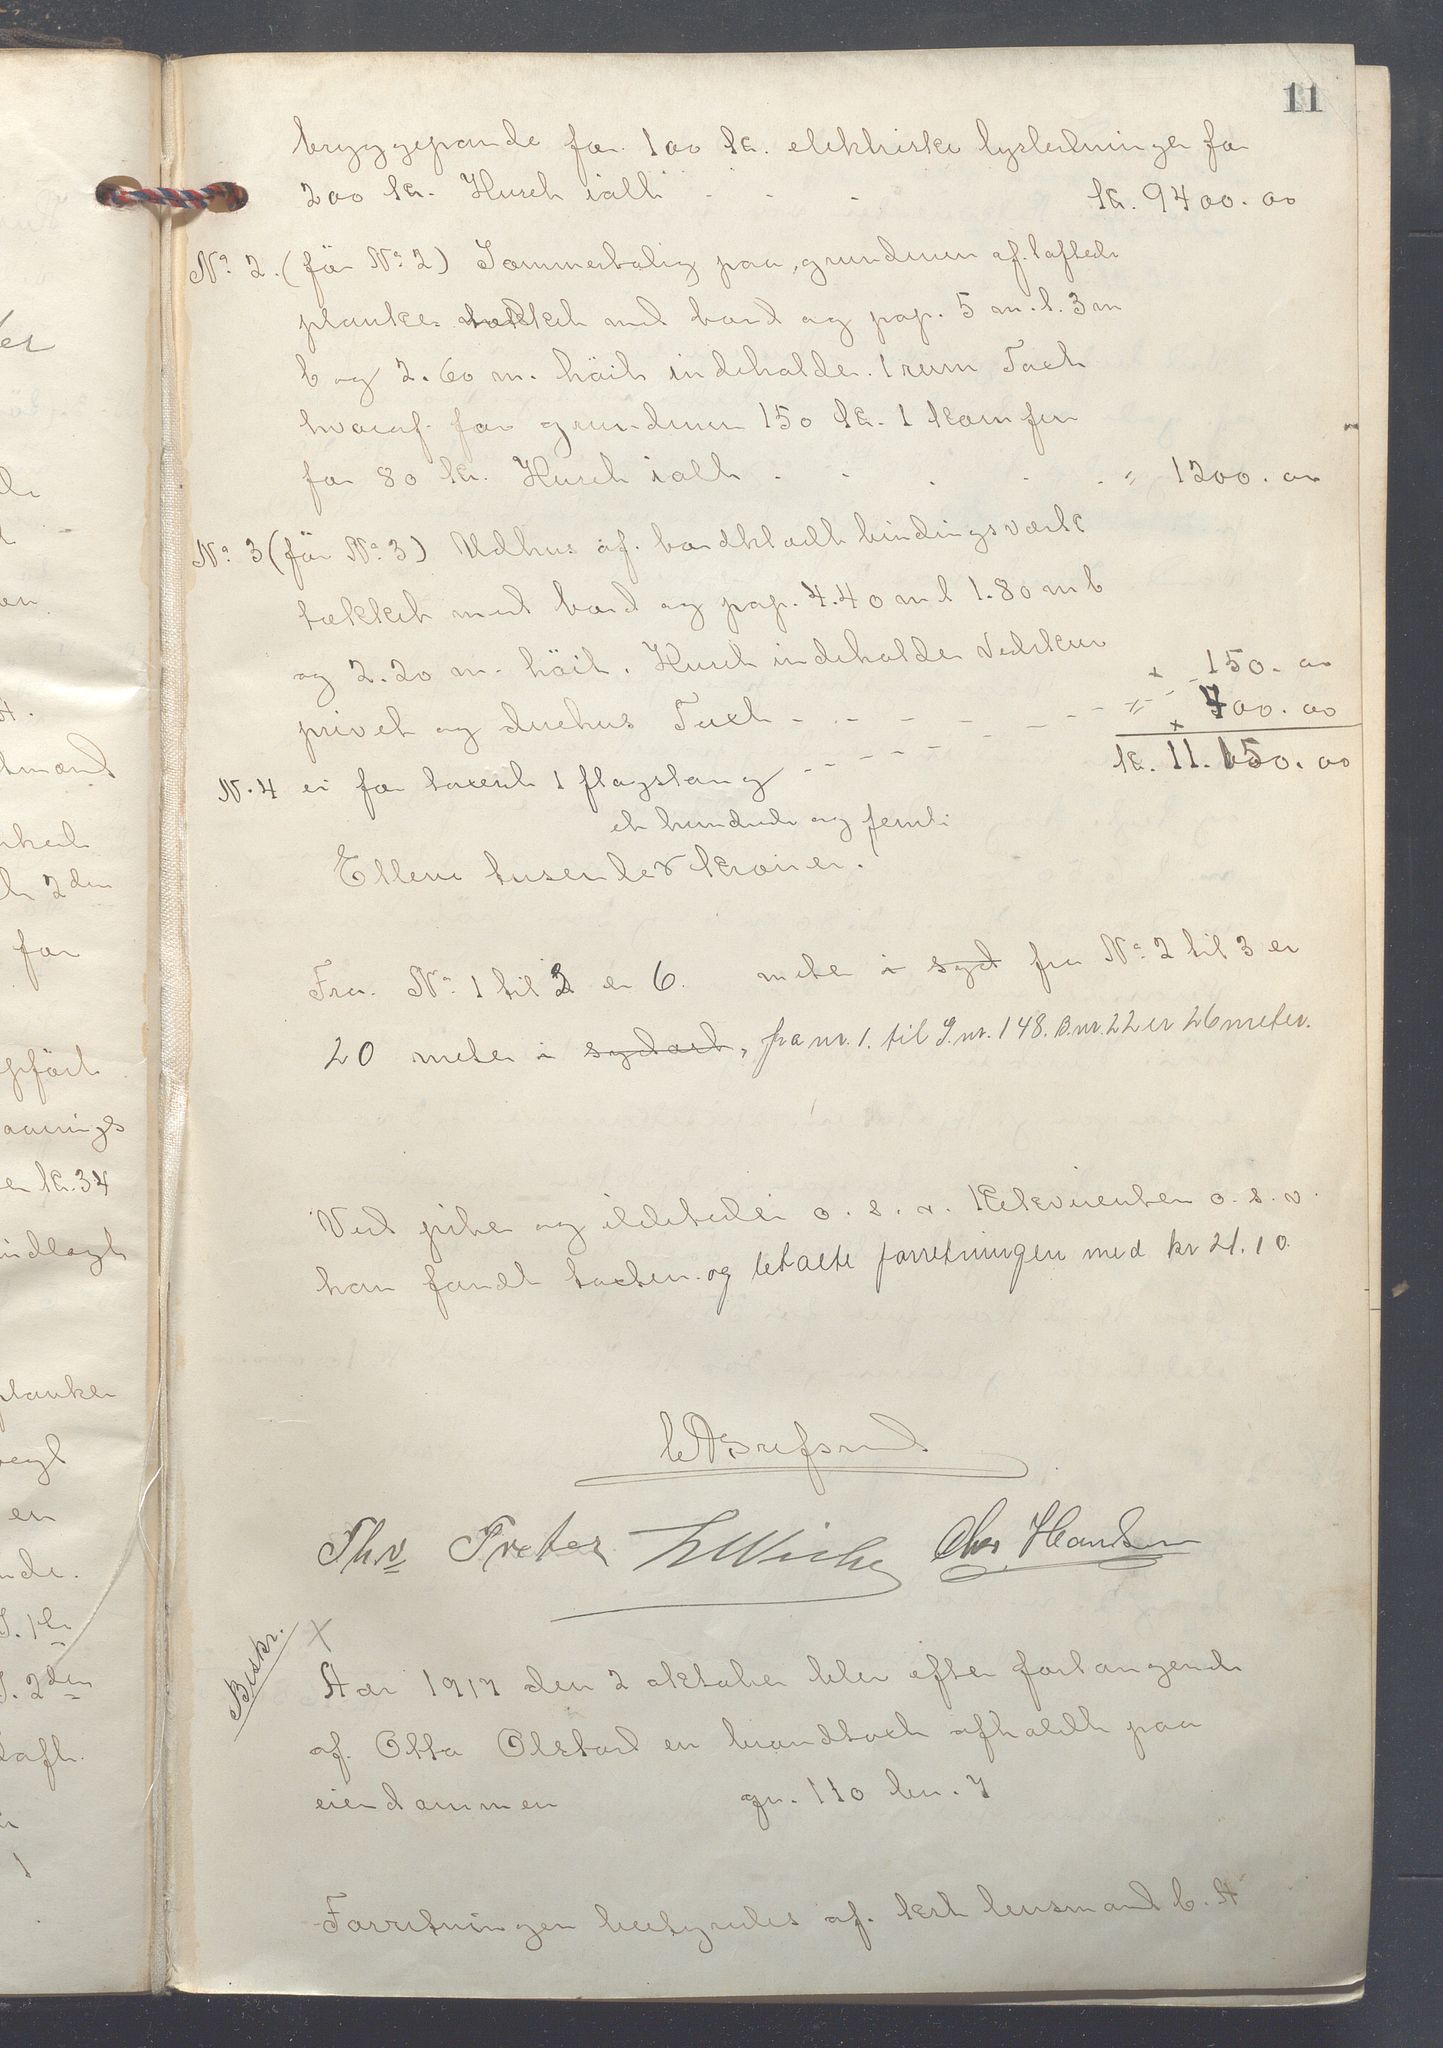 11
bryggepande for 100 kr. elektriske lysledninger for
200 kr. Huset ialt . . . kr. 9400.00
No 2. (før No 2) Sommerbolig paa grundmur af laftede
planker tækket med bord og pap. 5 m. l. 3 m
b og 2.60 m. höit indeholder 1 rum Taxt
hvoraf for grundmur 150 kr. 1 komfur
for 80 kr. Huset ialt . . . . . = 1200. 00
No 3 (før No 3) Udhus af bordklædt bindingsværk
tækket med bord og pap. 4.40 m l 1.80 m b
og 2.20 m. höit. Huset indeholder Vedskur
privet og duehus Taxt - - - - - - × 150. 00
N. 4 ny for taxert 1 flagstang - - - - - = 400. 00
kr. 11.150.00
et hundrede og femti
Elleve tusende kroner.
Fra No 1 til 2 er 6 meter i syd fra No 2 til 3 er
20 meter i sydost, fra nr. 1. til G.nr. 148. B.nr. 22 er 26 meter.
Ved piber og ildsteder o. s. v. Rekvirenten o. s. v.
han fandt taxten og betalte forretningen med kr 21.10.
Thv Treter LWiche Chr. Hansen
Beskr.
×
Aar 1917 den 2 oktober blev efter forlangende
af Otto Olstad en brandtaxt afholdt paa
eiendommen gn. 110 bn. 7
Forretningen bestyredes af kst lensmand C. A